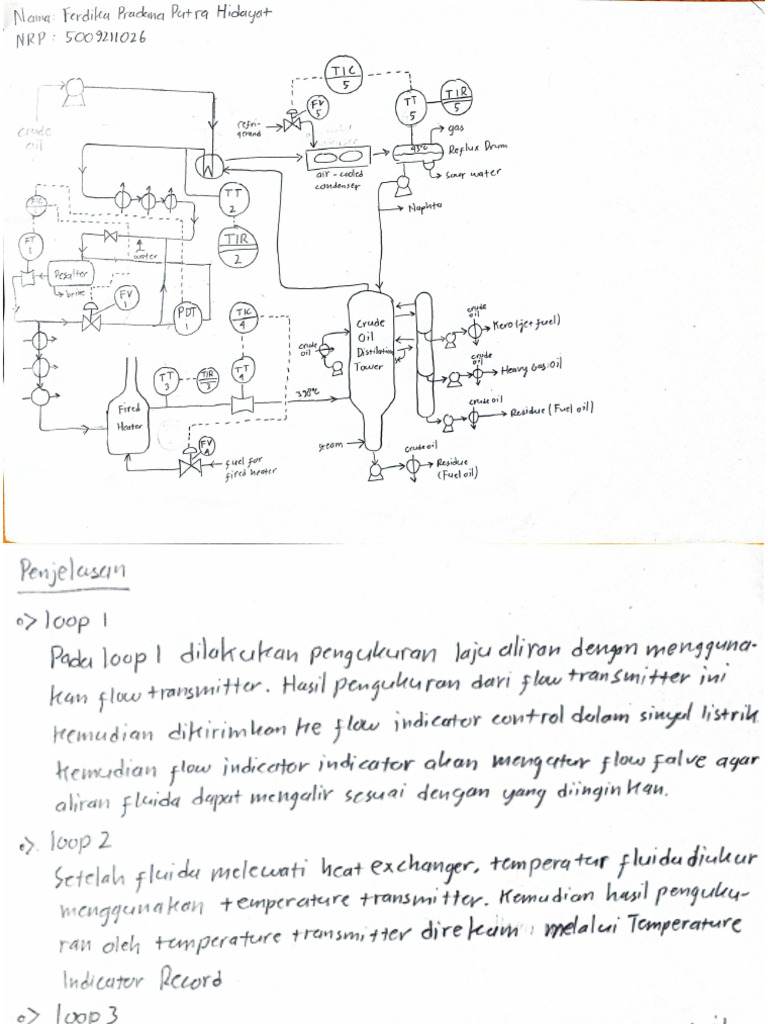 Nama: Ferdika Pradana Putra Hidayat
NRP : 5009211026
crude
oil
TIC
5
FV
5
refri-
gerand
TT
5
TIR
5
gas
43°C
Reflux Drum
sour water
air-cooled
condenser
Naphta
TT
2
TIR
2
FT
1
water
Desalter
brine
FV
1
PDT
1
TIC
4
TT
3
TIR
3
TT
4
378°C
Fired
Heater
FV
4
fuel for
fired heater
crude
oil
Crude
Oil
Distilation
Tower
steam
crude
oil
Kero (jet fuel)
crude
oil
Heavy Gas Oil
crude oil
Residue (Fuel oil)
crude oil
Residue
(Fuel oil)
Penjelasan
o> loop 1
Pada loop 1 dilakukan pengukuran laju aliran dengan mengguna-
kan flow transmitter. Hasil pengukuran dari flow transmitter ini
kemudian dikirimkan ke flow indicator control dalam sinyal listrik
kemudian flow indicator indicator akan mengatur flow falve agar
aliran fluida dapat mengalir sesuai dengan yang diinginkan.
o>. loop 2
Setelah fluida melewati heat exchanger, temperatur fluida diukur
menggunakan temperature transmitter. Kemudian hasil penguku-
ran oleh temperature transmitter direkam melalui Temperature
Indicator Record
o> loop 3